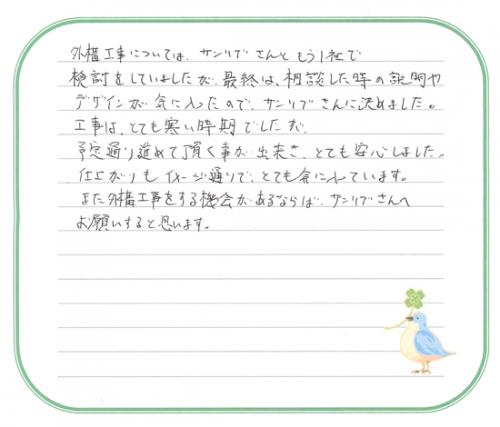 外構工事については、サンリブさんともう1社で
検討をしていましたが、最終は、相談した時の説明や
デザインが気に入ったので、サンリブさんに決めました。
工事は、とても寒い時期でしたが、
予定通り進めて頂く事が出来き、とても安心しました。
仕上がりもイメージ通りで、とても気に入っています。
また外構工事をする機会があるならば、サンリブさんへ
お願いすると思います。